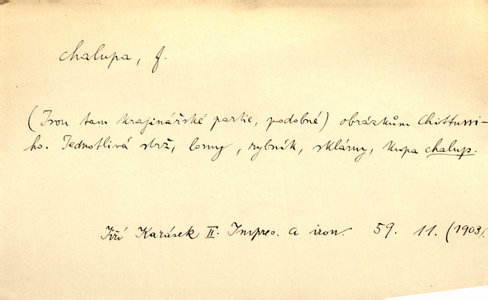 chalupa, f.
(Jsou tam krajinářské partie, podobné) obrázkům Chittussi-
ho. Jednotlivá strž, lomy, rybník, sklárny, kupa chalup.
Jiří Karásek II. Impres. a iron. 59. 11. (1903).